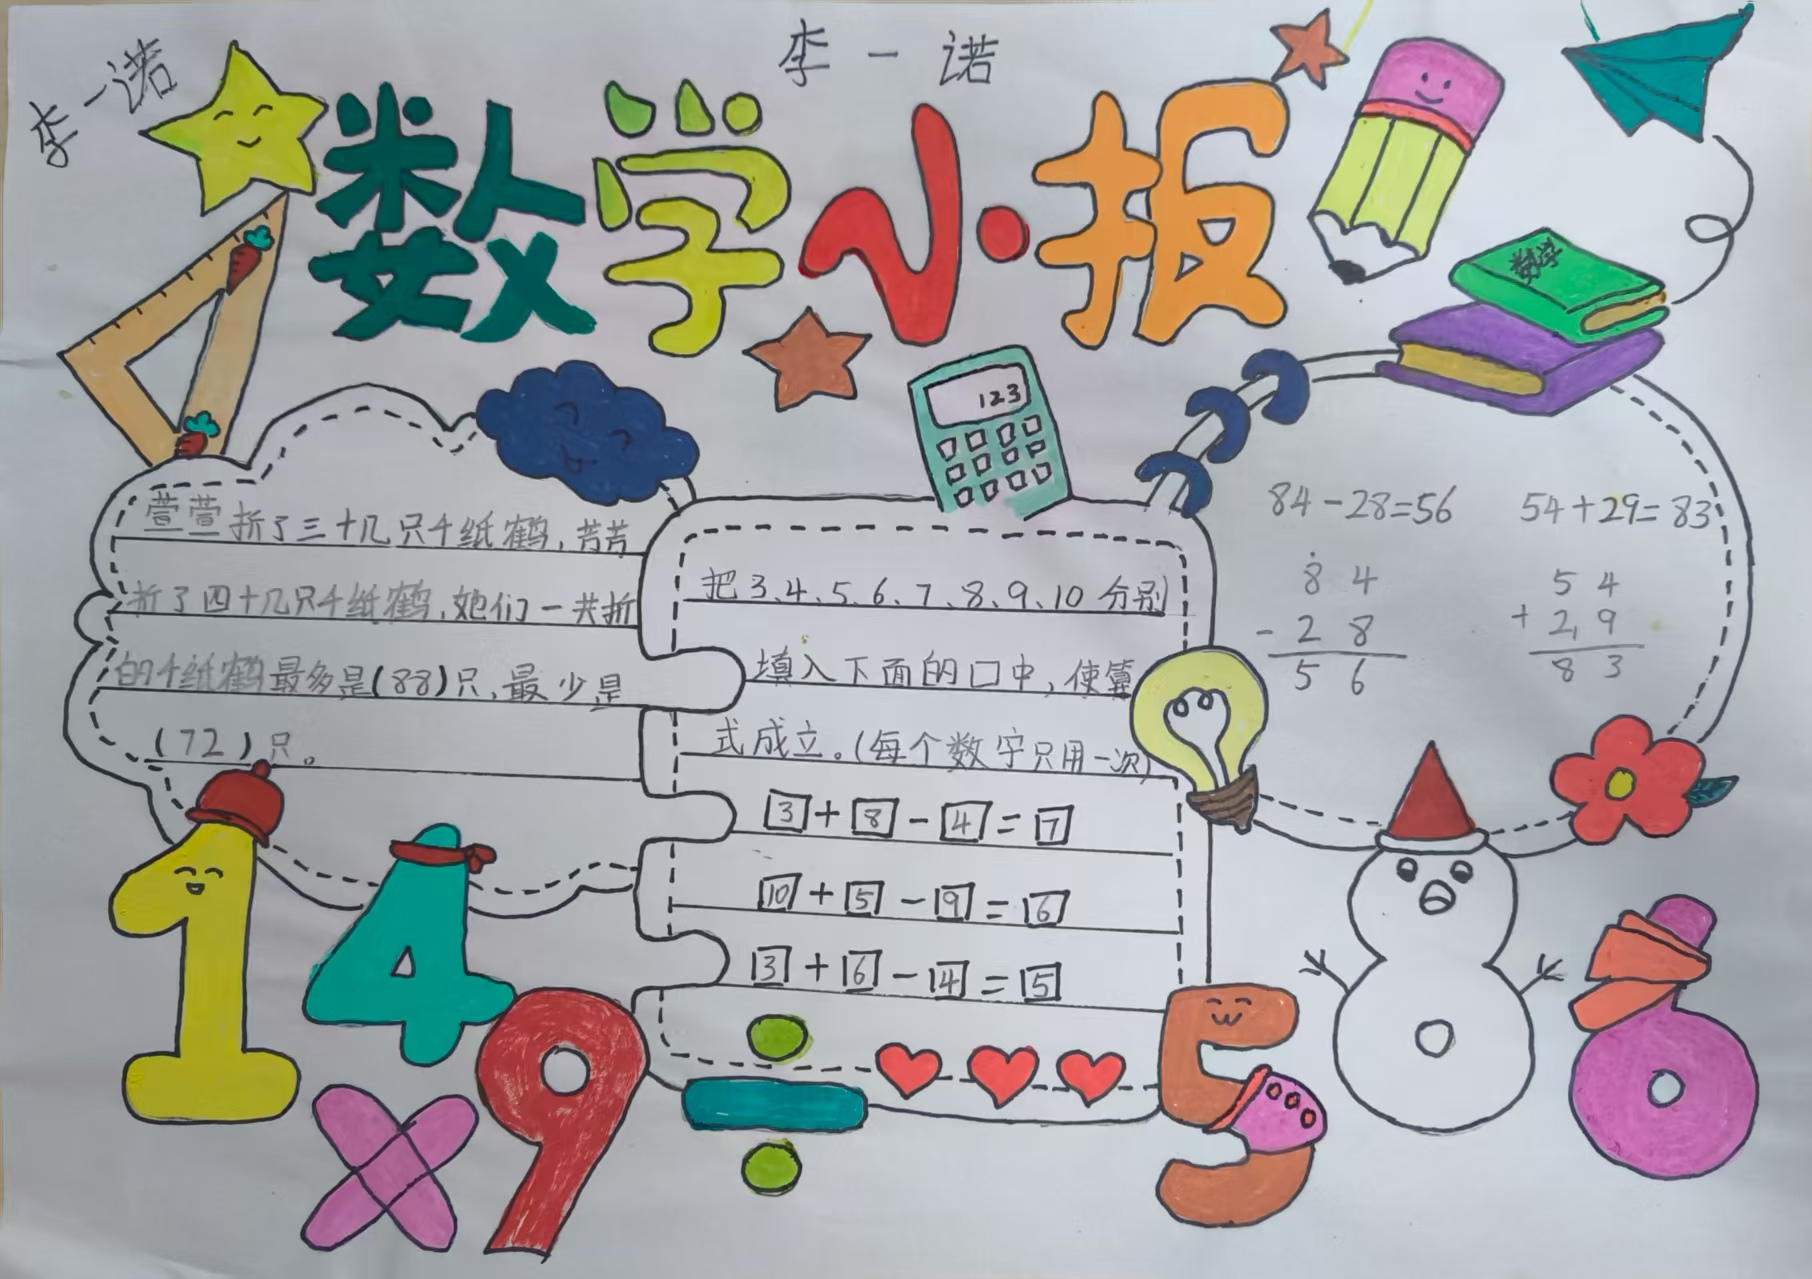 李一诺
李一诺
数学小报
数学
123
萱萱折了三十几只千纸鹤,芳芳
折了四十几只千纸鹤,她们一共折
的千纸鹤最多是(88)只,最少是
(72)只。
把3、4、5、6、7、8、9、10分别
填入下面的口中,使算
式成立。(每个数字只用一次)
3+8-4=7
10+5-9=6
3+6-4=5
84-28=56 54+29=83
8 4
- 2 8
5 6
5 4
+ 2 1 9
8 3
1
4
9
5
8
6
×
÷